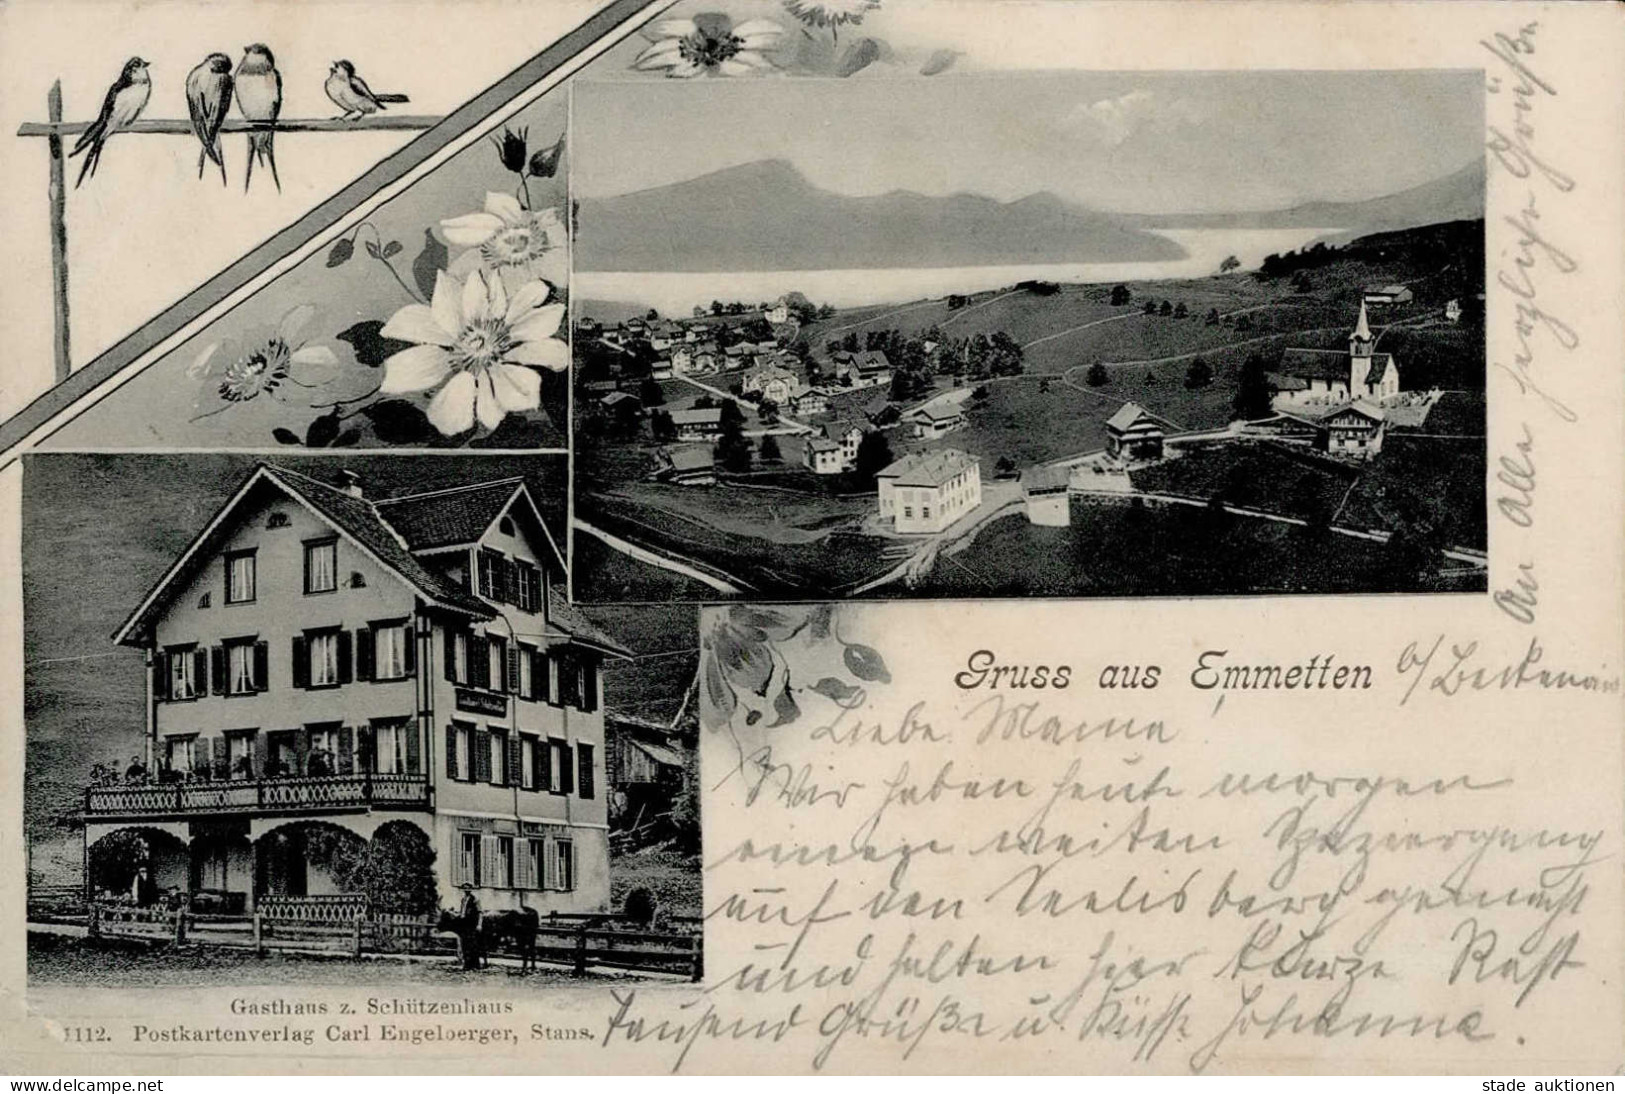 Gruss aus Emmetten b/ Beckenried
Liebe Mama!
Wir haben heute morgen
einen weiten Spaziergang
auf den Seelisberg gemacht
und halten hier kurze Rast
Tausend Grüße u. Küsse Johanna.
An Alle herzliche Grüße.
Gasthaus z. Schützenhaus
1112. Postkartenverlag Carl Engelberger, Stans.
www.delcampe.net
stade auktionen